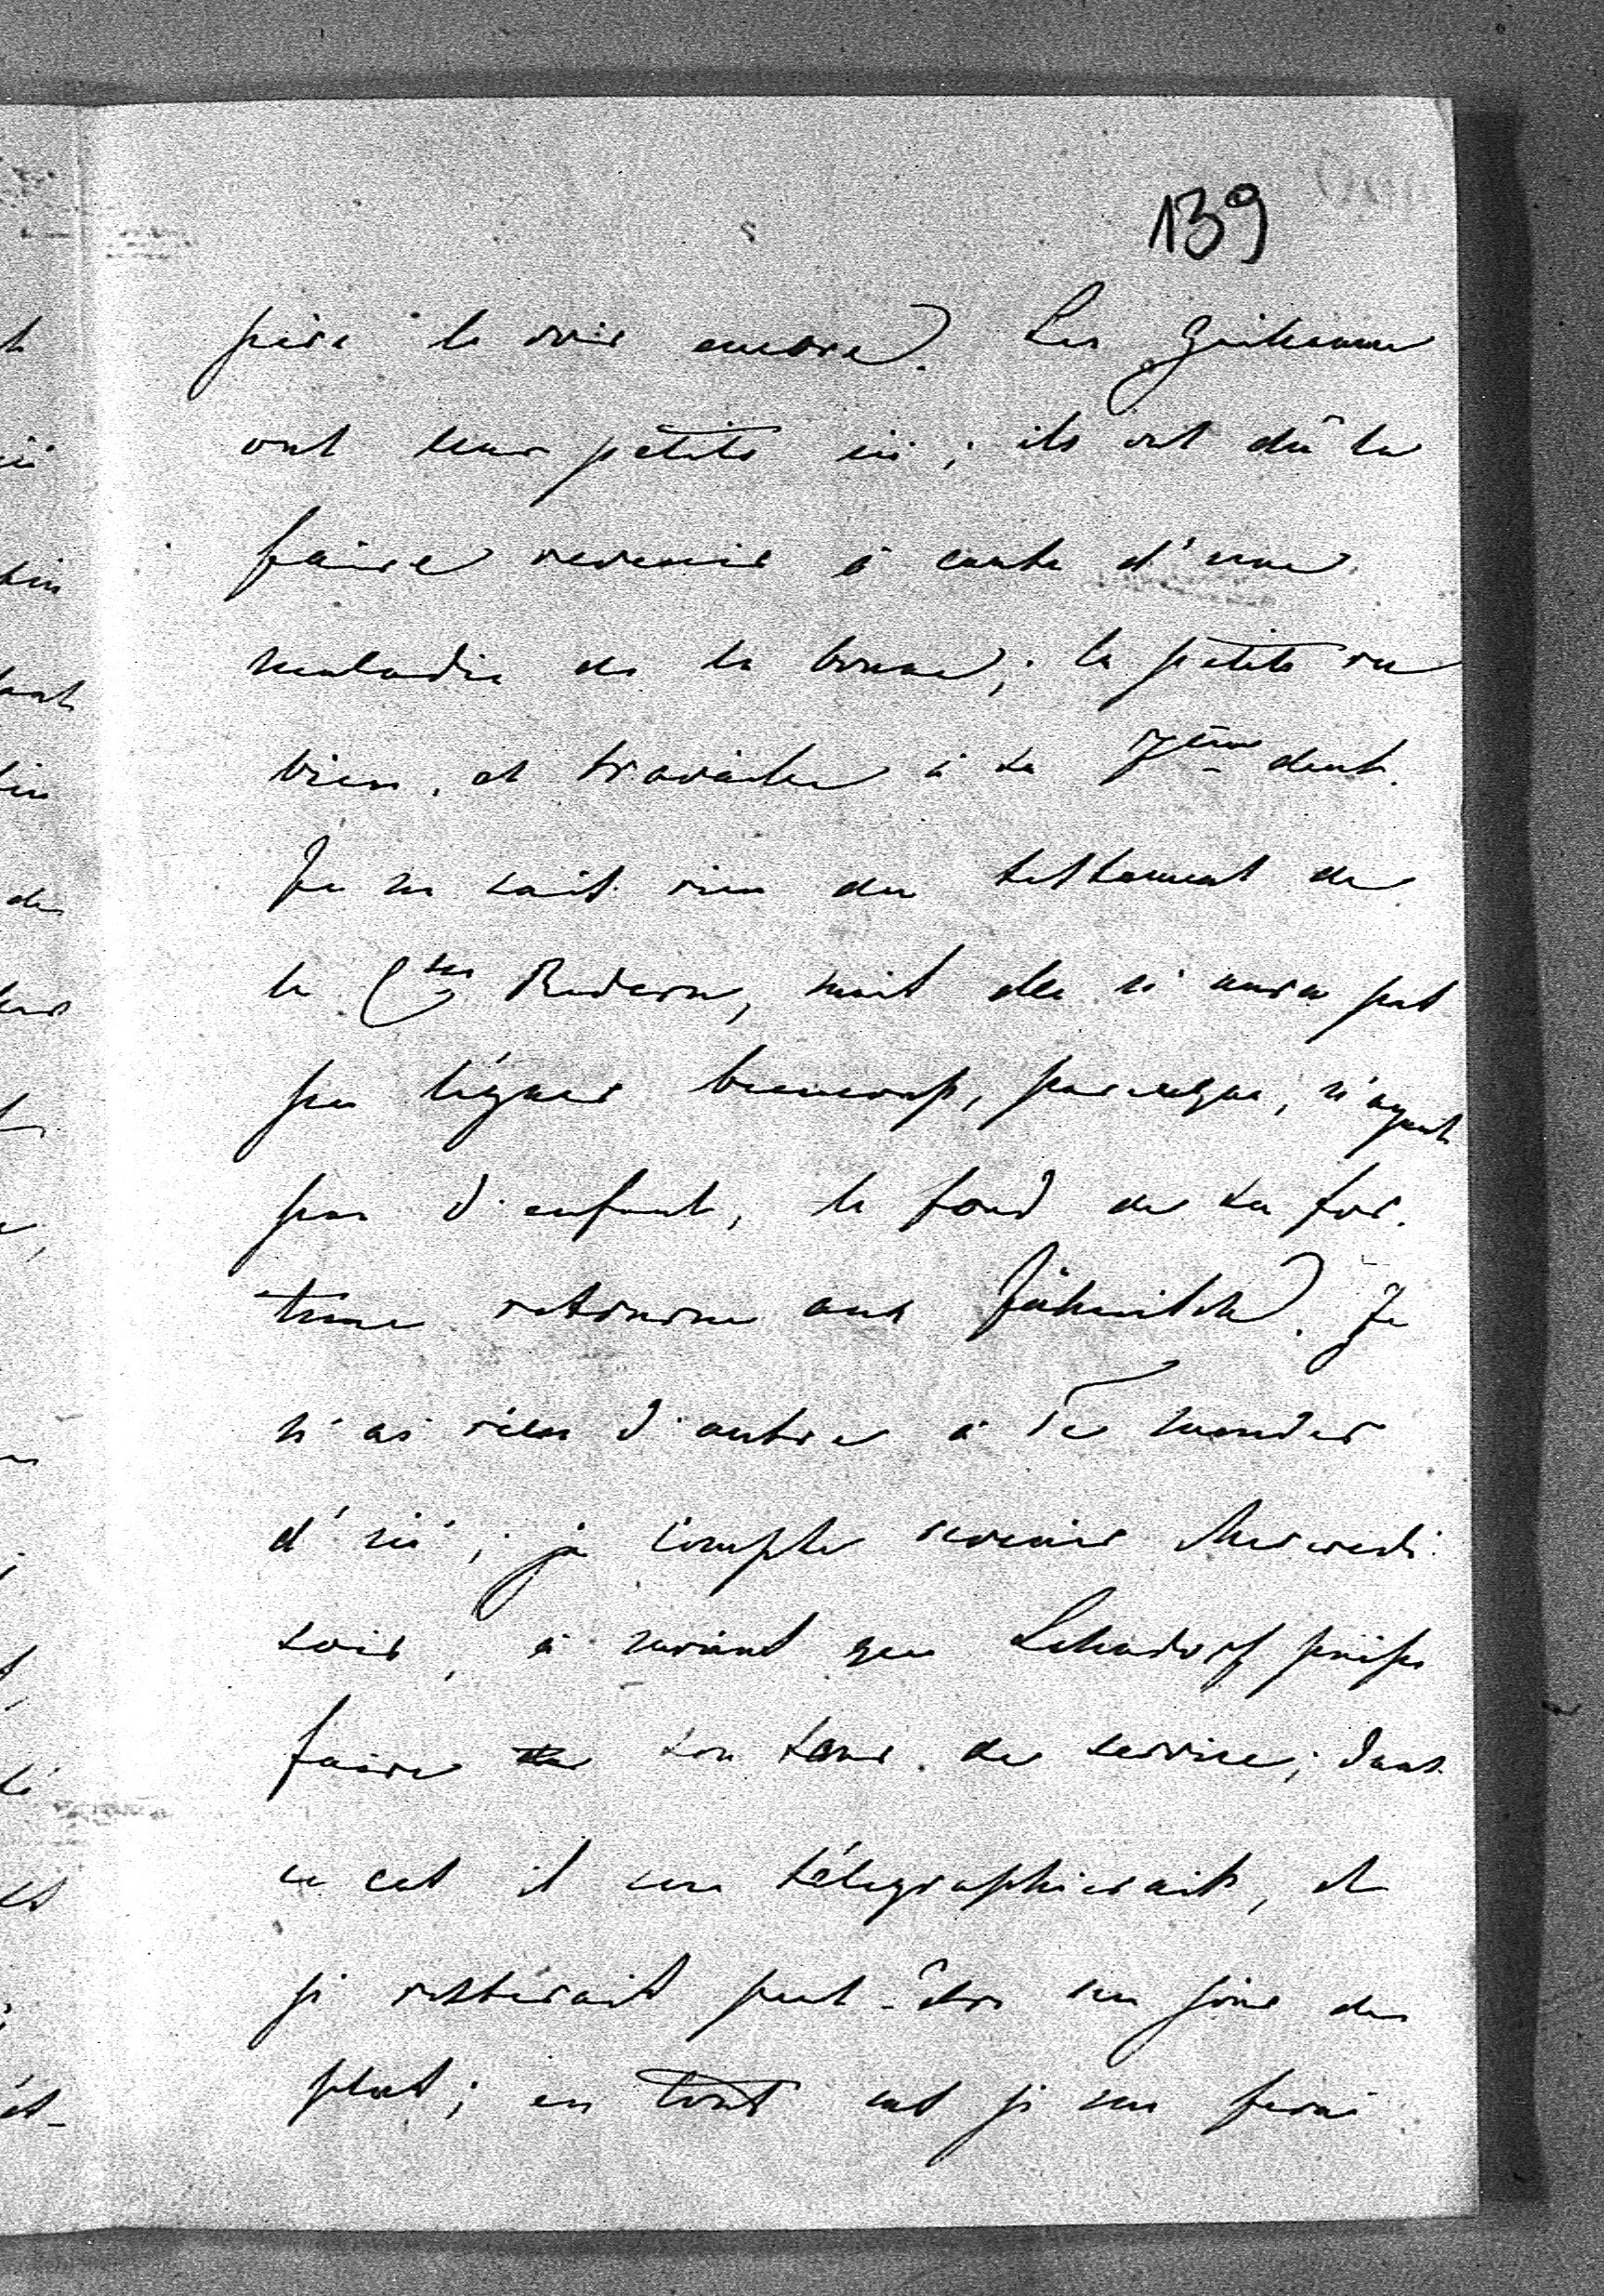 139
père le voir encore. Les Guillaume
ont leur petite ici; ils ont dû la
faire revenir à cause d'une
maladie de la bonne; la petite va
bien, et travaille à sa 7ème dent.
Je ne sais rien du testament de
la Ctesse Redern, mais elle n'aura pas
pu léguer beaucoup, parceque, n'ayant
pas d'enfant, le fond de sa for-
tune retourne aux
Je
n'ai rien d'autre à Te mander
d'ici; je compte revenir Mercredi
soir, à moins que Lehndorf puisse
faire son tour de service; dans
ce cas il me télégraphierait, et
je resterais peut-être un jour de
plus; en tout cas je me ferai